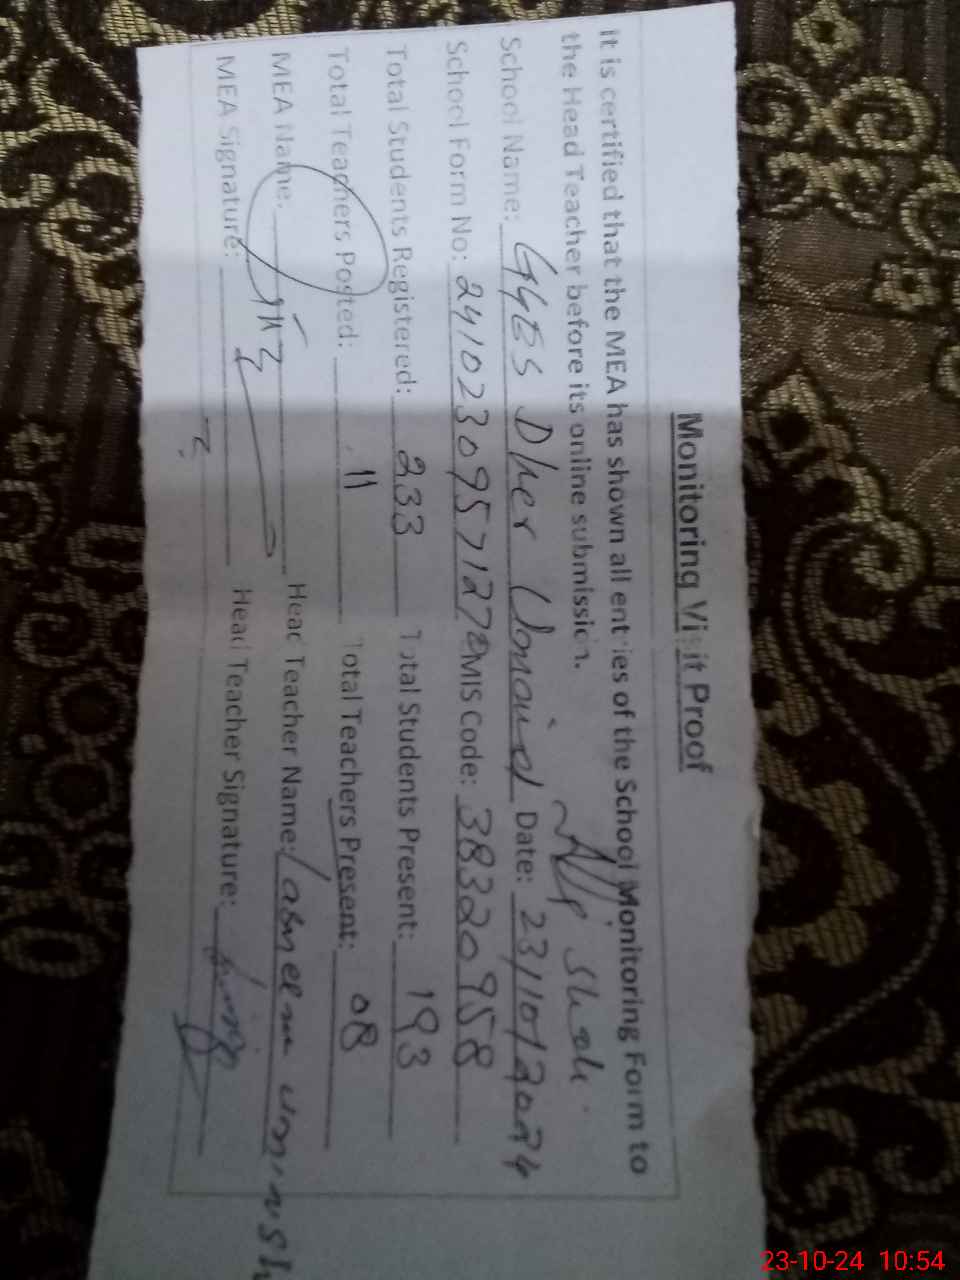 Monitoring Visit Proof
It is certified that the MEA has shown all entries of the School Monitoring Form to
the Head Teacher before its online submission.
Ali Shah
School Name: GGES Dher Umaid Date: 23/10/2024
School Form No: EMIS Code: 38320958
Total Students Registered: 233 Total Students Present: 193
Total Teachers Posted: 11 Total Teachers Present: 08
MEA Name: Head Teacher Name:
MEA Signature: Head Teacher Signature:
23-10-24 10:54